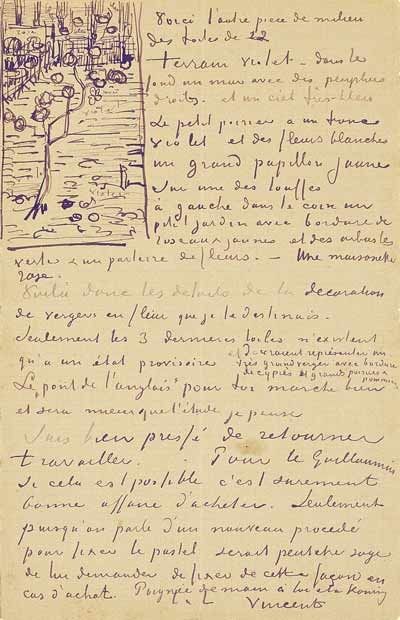 Voici l'autre piece de milieu
des toiles de 12
terrain violet – dans le
fond un mur avec des peupliers
droits et un ciel très bleu
Le petit poirier a un tronc
violet et des fleurs blanches
un grand papillon jaune
sur une des touffes
à gauche dans le coin un
petit jardin avec bordure de
roseaux jaunes et des arbustes
verts & un parterre de fleurs. – Une maisonette
rose.
Voilà donc les details de la décoration
de vergers en fleur que je te destinais.
Seulement les 3 dernieres toiles n'existent
qu'a un état provisoire et devraient représenter un
très grand verger avec bordure
de cyprès et grands poiriers &
pommiers
Le „pont de l'anglais" pour toi marche bien
et sera mieux que l'étude je pense
Suis bien pressé de retourner
travailler. Pour le Guillaumin
si cela est possible c'est surement
bonne affaire d'acheter. Seulement
puisqu'on parle d'un nouveau procédé
pour fixer le pastel serait peutetre sage
de lui demander de fixer de cette façon en
cas d'achat. Poignée de main à toi et à Koning
t. à t. Vincent
violet